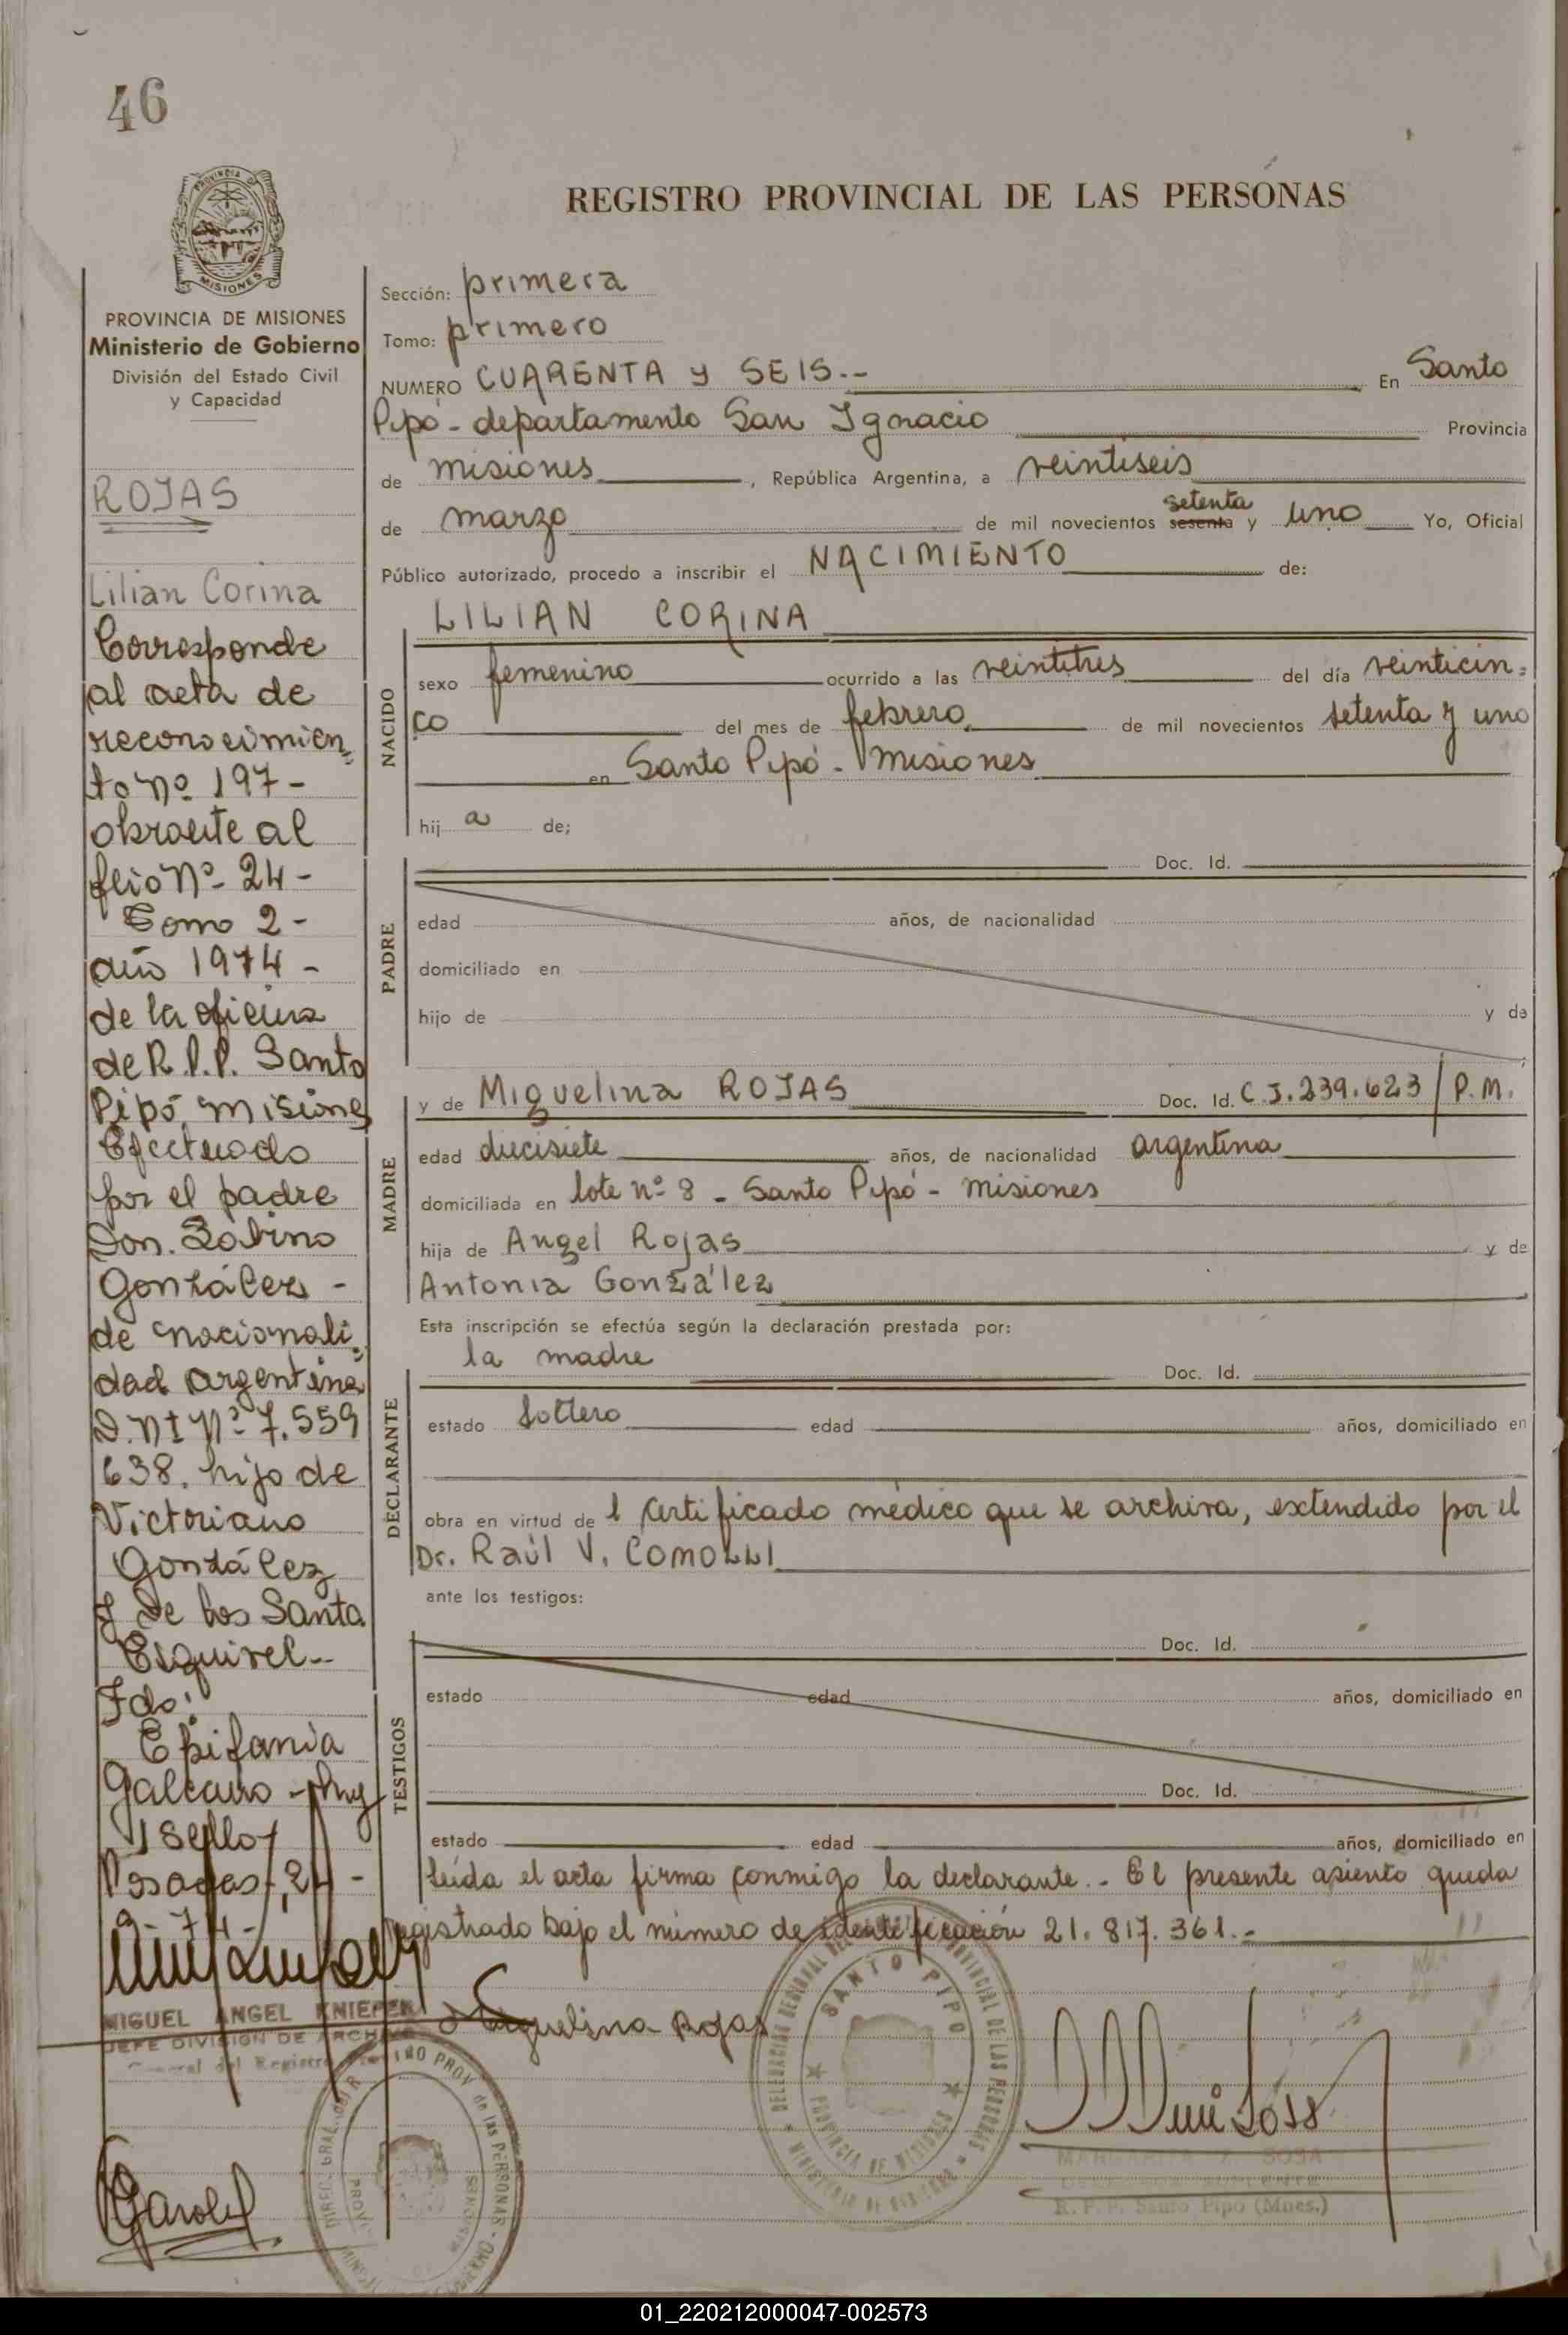 46
PROVINCIA DE
MISIONES
REGISTRO PROVINCIAL DE LAS PERSONAS
PROVINCIA DE MISIONES
Ministerio de Gobierno
División del Estado Civil
y Capacidad
ROJAS
Lilian Corina
Corresponde
al acta de
reconocimien
to nº 197-
obrante al
flio Nº- 24-
Tomo 2-
año 1974-
de la oficina
de R.P.P. Santo
Pipó, Misiones
Efectuado
por el padre
Don. Sabino
González -
de nacionali
dad argentina
D.NI Nº 7.559
638. hijo de
Victoriano
González
y de los Santa
Esquivel--
Fdo:
Epifania
Galeano -
Sello/
Posadas, 24-
9-74-
MIGUEL ANGEL KNIEPER
JEFE DIVISION DE ARCHIVO
General del Registro
Sección: primera
Tomo: primero
NUMERO CUARENTA y SEIS.-- En Santo
Pipó - departamento San Ignacio Provincia
de misiones, República Argentina, a veintiseis
de marzo de mil novecientos sesenta setenta y uno Yo, Oficial
Público autorizado, procedo a inscribir el NACIMIENTO de:
LILIAN CORINA
NACIDO
sexo femenino ocurrido a las veintitres del día veinticin=
co del mes de febrero de mil novecientos setenta y uno
en Santo Pipó - Misiones
hij a de;
PADRE
Doc. Id.
edad años, de nacionalidad
domiciliado en
hijo de y de
MADRE
y de Miguelina ROJAS Doc. Id. C.I.239.623/P.M.
edad diecisiete años, de nacionalidad argentina
domiciliada en lote nº 8 - Santo Pipó - Misiones
hija de Angel Rojas y de
Antonia González
Esta inscripción se efectúa según la declaración prestada por:
la madre Doc. Id.
DECLARANTE
estado soltero edad años, domiciliado en
obra en virtud de l certificado médico que se archiva, extendido por el
Dr. Raúl V. COMOLLI
ante los testigos:
TESTIGOS
Doc. Id.
estado edad años, domiciliado en
Doc. Id.
estado edad años, domiciliado en
leída el acta firma conmigo la declarante.- El presente asiento queda
registrado bajo el número de identificación 21.817.361.-
Miguelina Rojas
SANTO PIPO
PROVINCIA DE MISIONES
MARGARITA SOSA
R. P. P. Santo Pipó (Mnes.)
01_220212000047-002573